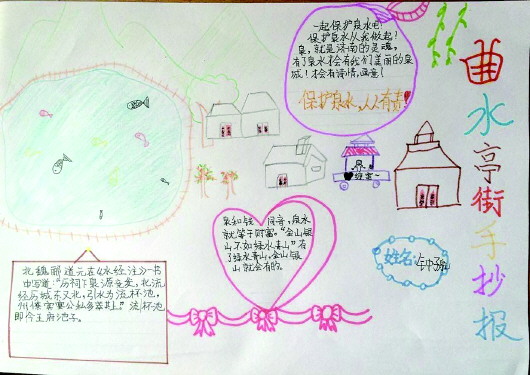 一起保护泉水吧!
保护泉水从我做起!
泉,就是济南的灵魂,
有了泉水才会有我们美丽的泉
城!才会有诗情,画意!
保护泉水,人人有责!
曲水亭街手抄报
泉和钱 同音,泉水
就等于财富。“金山银
山不如绿水青山”有
了绿水青山,金山银
山就会有的。
姓名:
北魏郦道元在《水经注》一书
中写道:“历祠下泉源竞发,北流
经历城东又北,引水为流杯池,
州僚宾宴公私多萃其上”流杯池
即今王府池子。